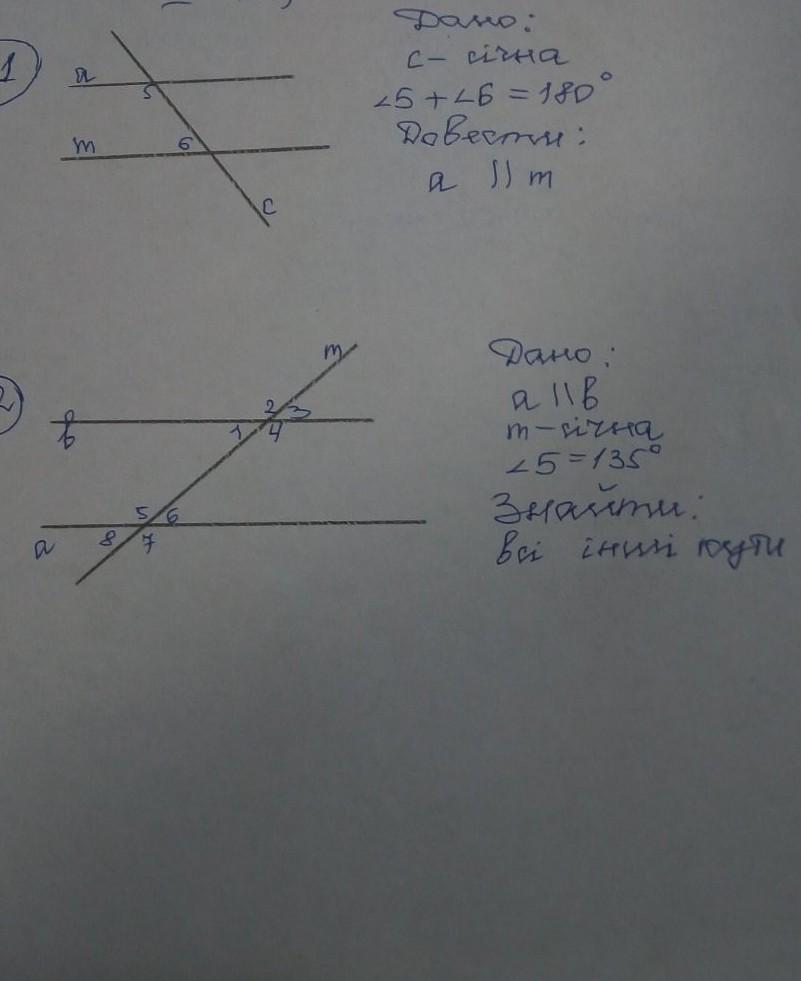 1
a
5
m
6
c
Дано:
c - січна
∠5 + ∠6 = 180°
Довести:
a || m
2
m
b
2 3
1 4
5 6
a
8 7
Дано:
a || b
m - січна
∠5 = 135°
Знайти:
всі інші кути